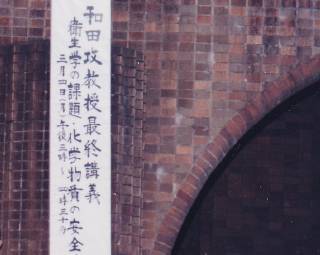 和田攻教授最終講義
衛生学の課題・化学物質の安全
三月四日(月)午後三時〜四時三十分